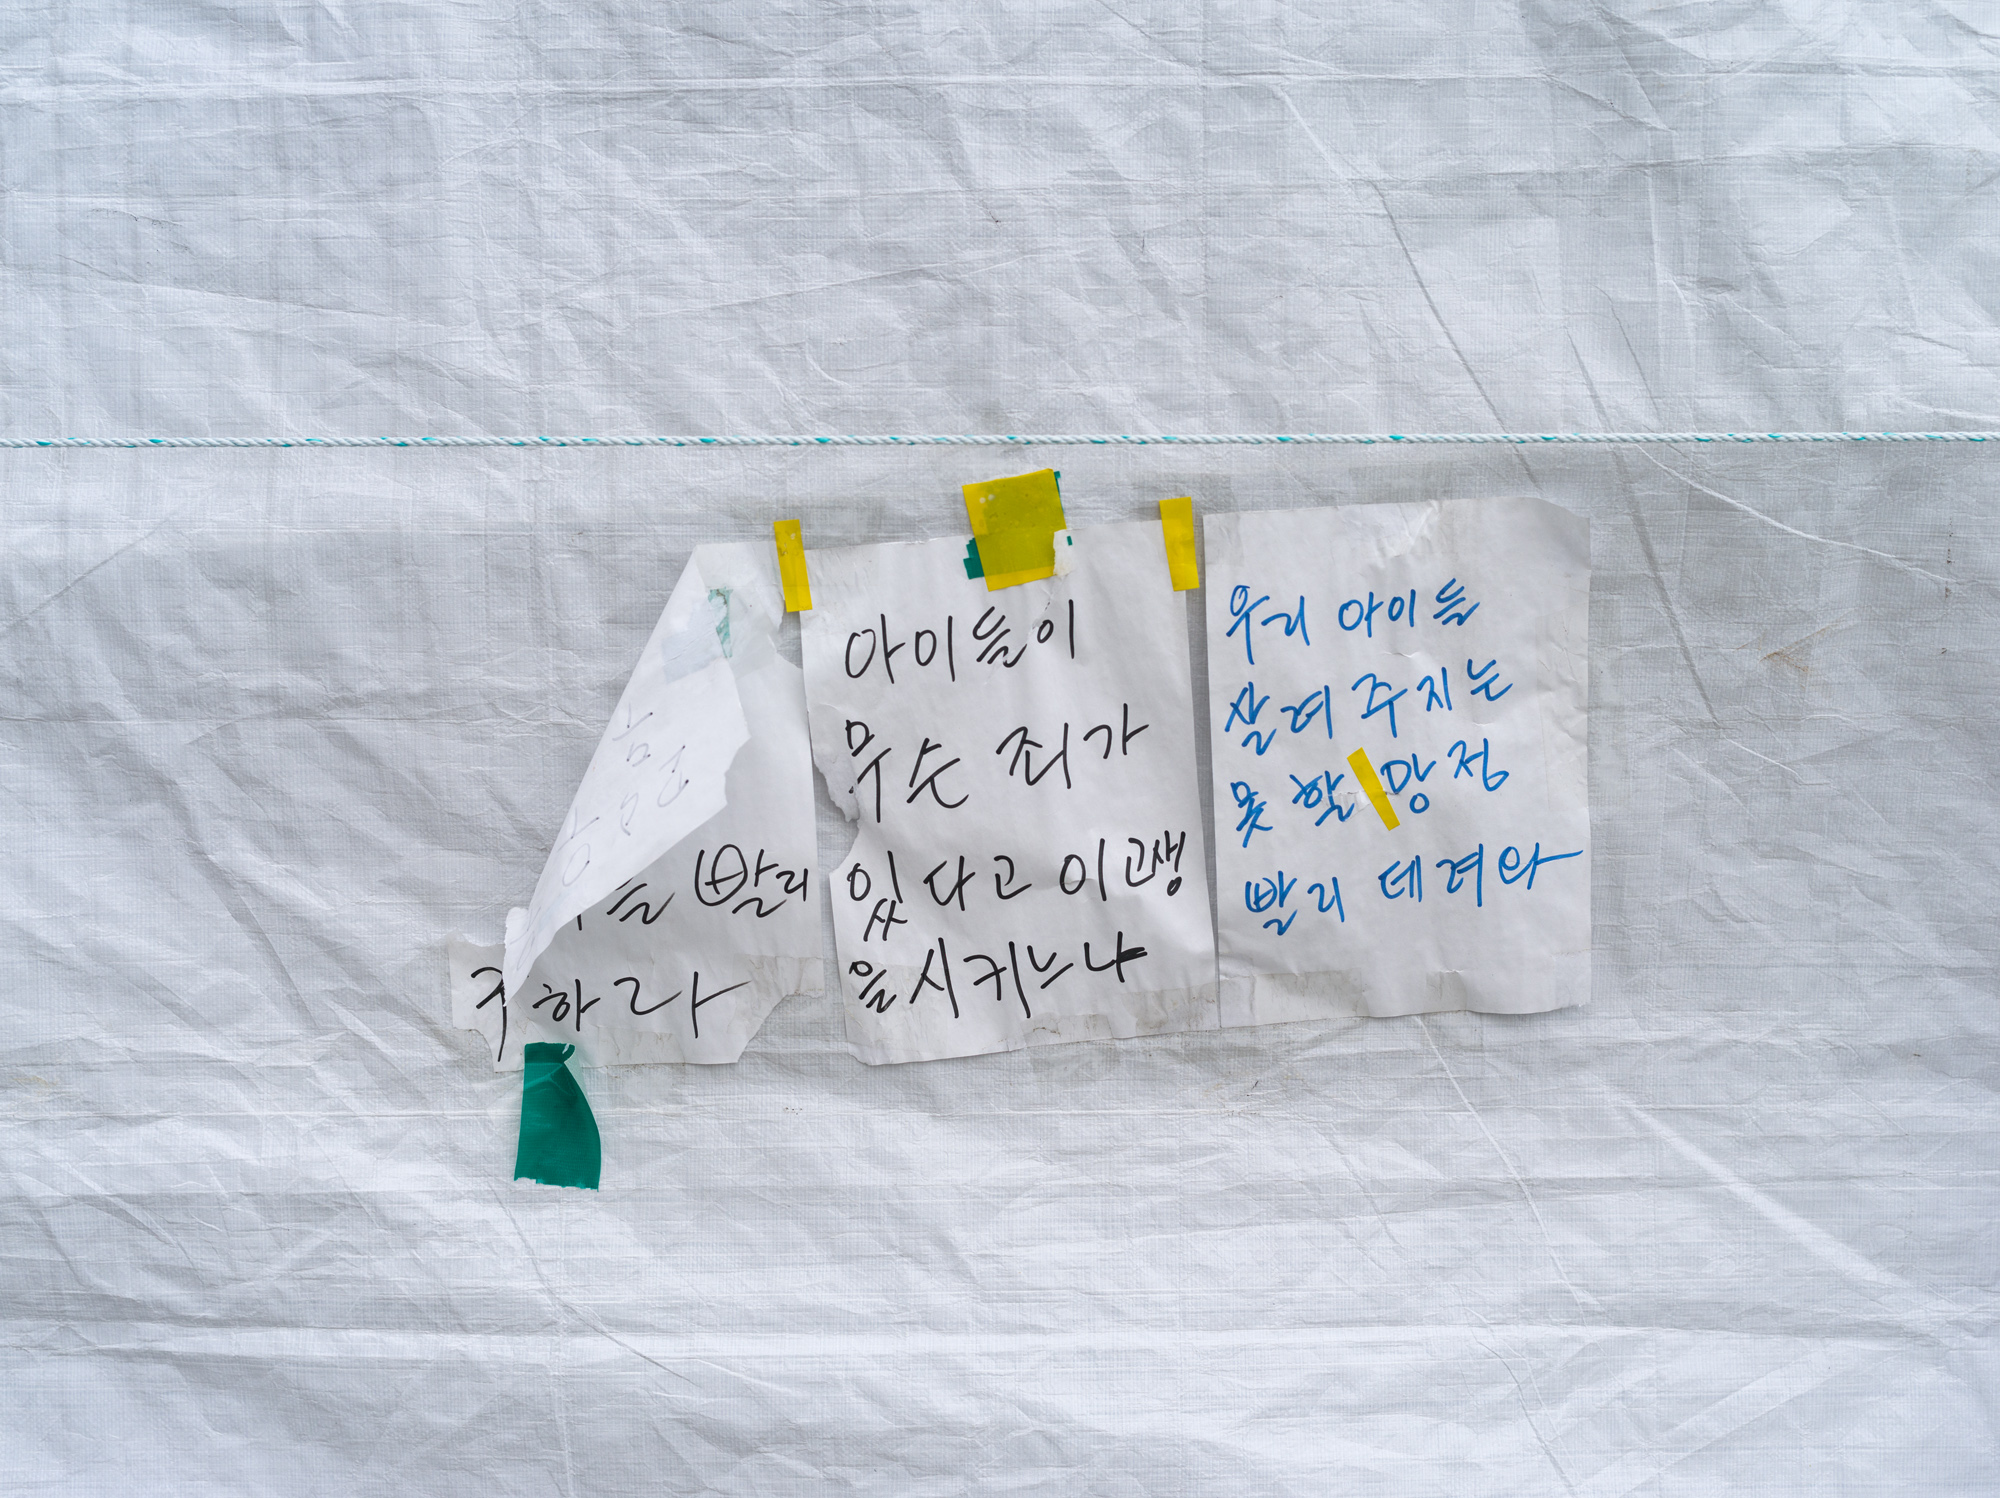 들 빨리
하라
아이들이
무슨 죄가
있다고 이 고생
을 시키느냐
우리 아이들
살려 주지는
못 할 망정
빨리 데려와